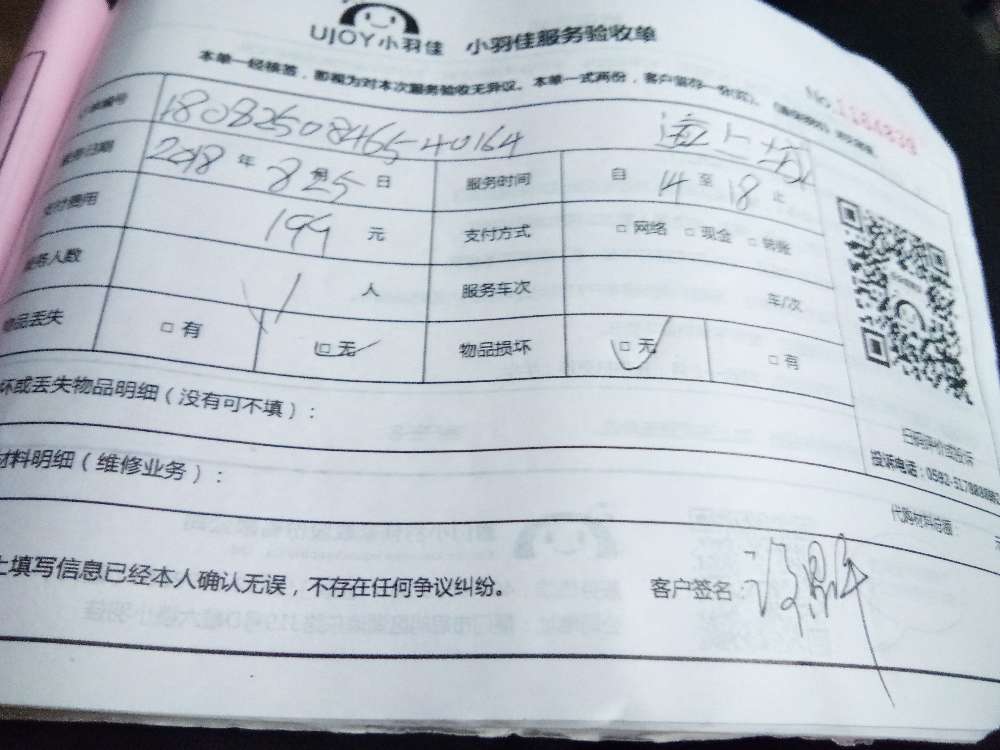 UJOY小羽佳 小羽佳服务验收单
本单一经核签，即视为对本次服务验收无异议。本单一式两份，客户留存一份(页)。
No.1184839
编号 18082508465-40164
日期 2018年 8月25日 服务时间 自 14 至 18 止
支付费用 199 元 支付方式 □ 网络 □ 现金 □ 转账
服务人数 1 人 服务车次 车/次
物品丢失 □ 有 □ 无 物品损坏 □ 无 □ 有
坏或丢失物品明细（没有可不填）：
扫码评价或投诉
材料明细（维修业务）：
投诉电话：0592-5178
代购材料总额： 元
上填写信息已经本人确认无误，不存在任何争议纠纷。 客户签名：